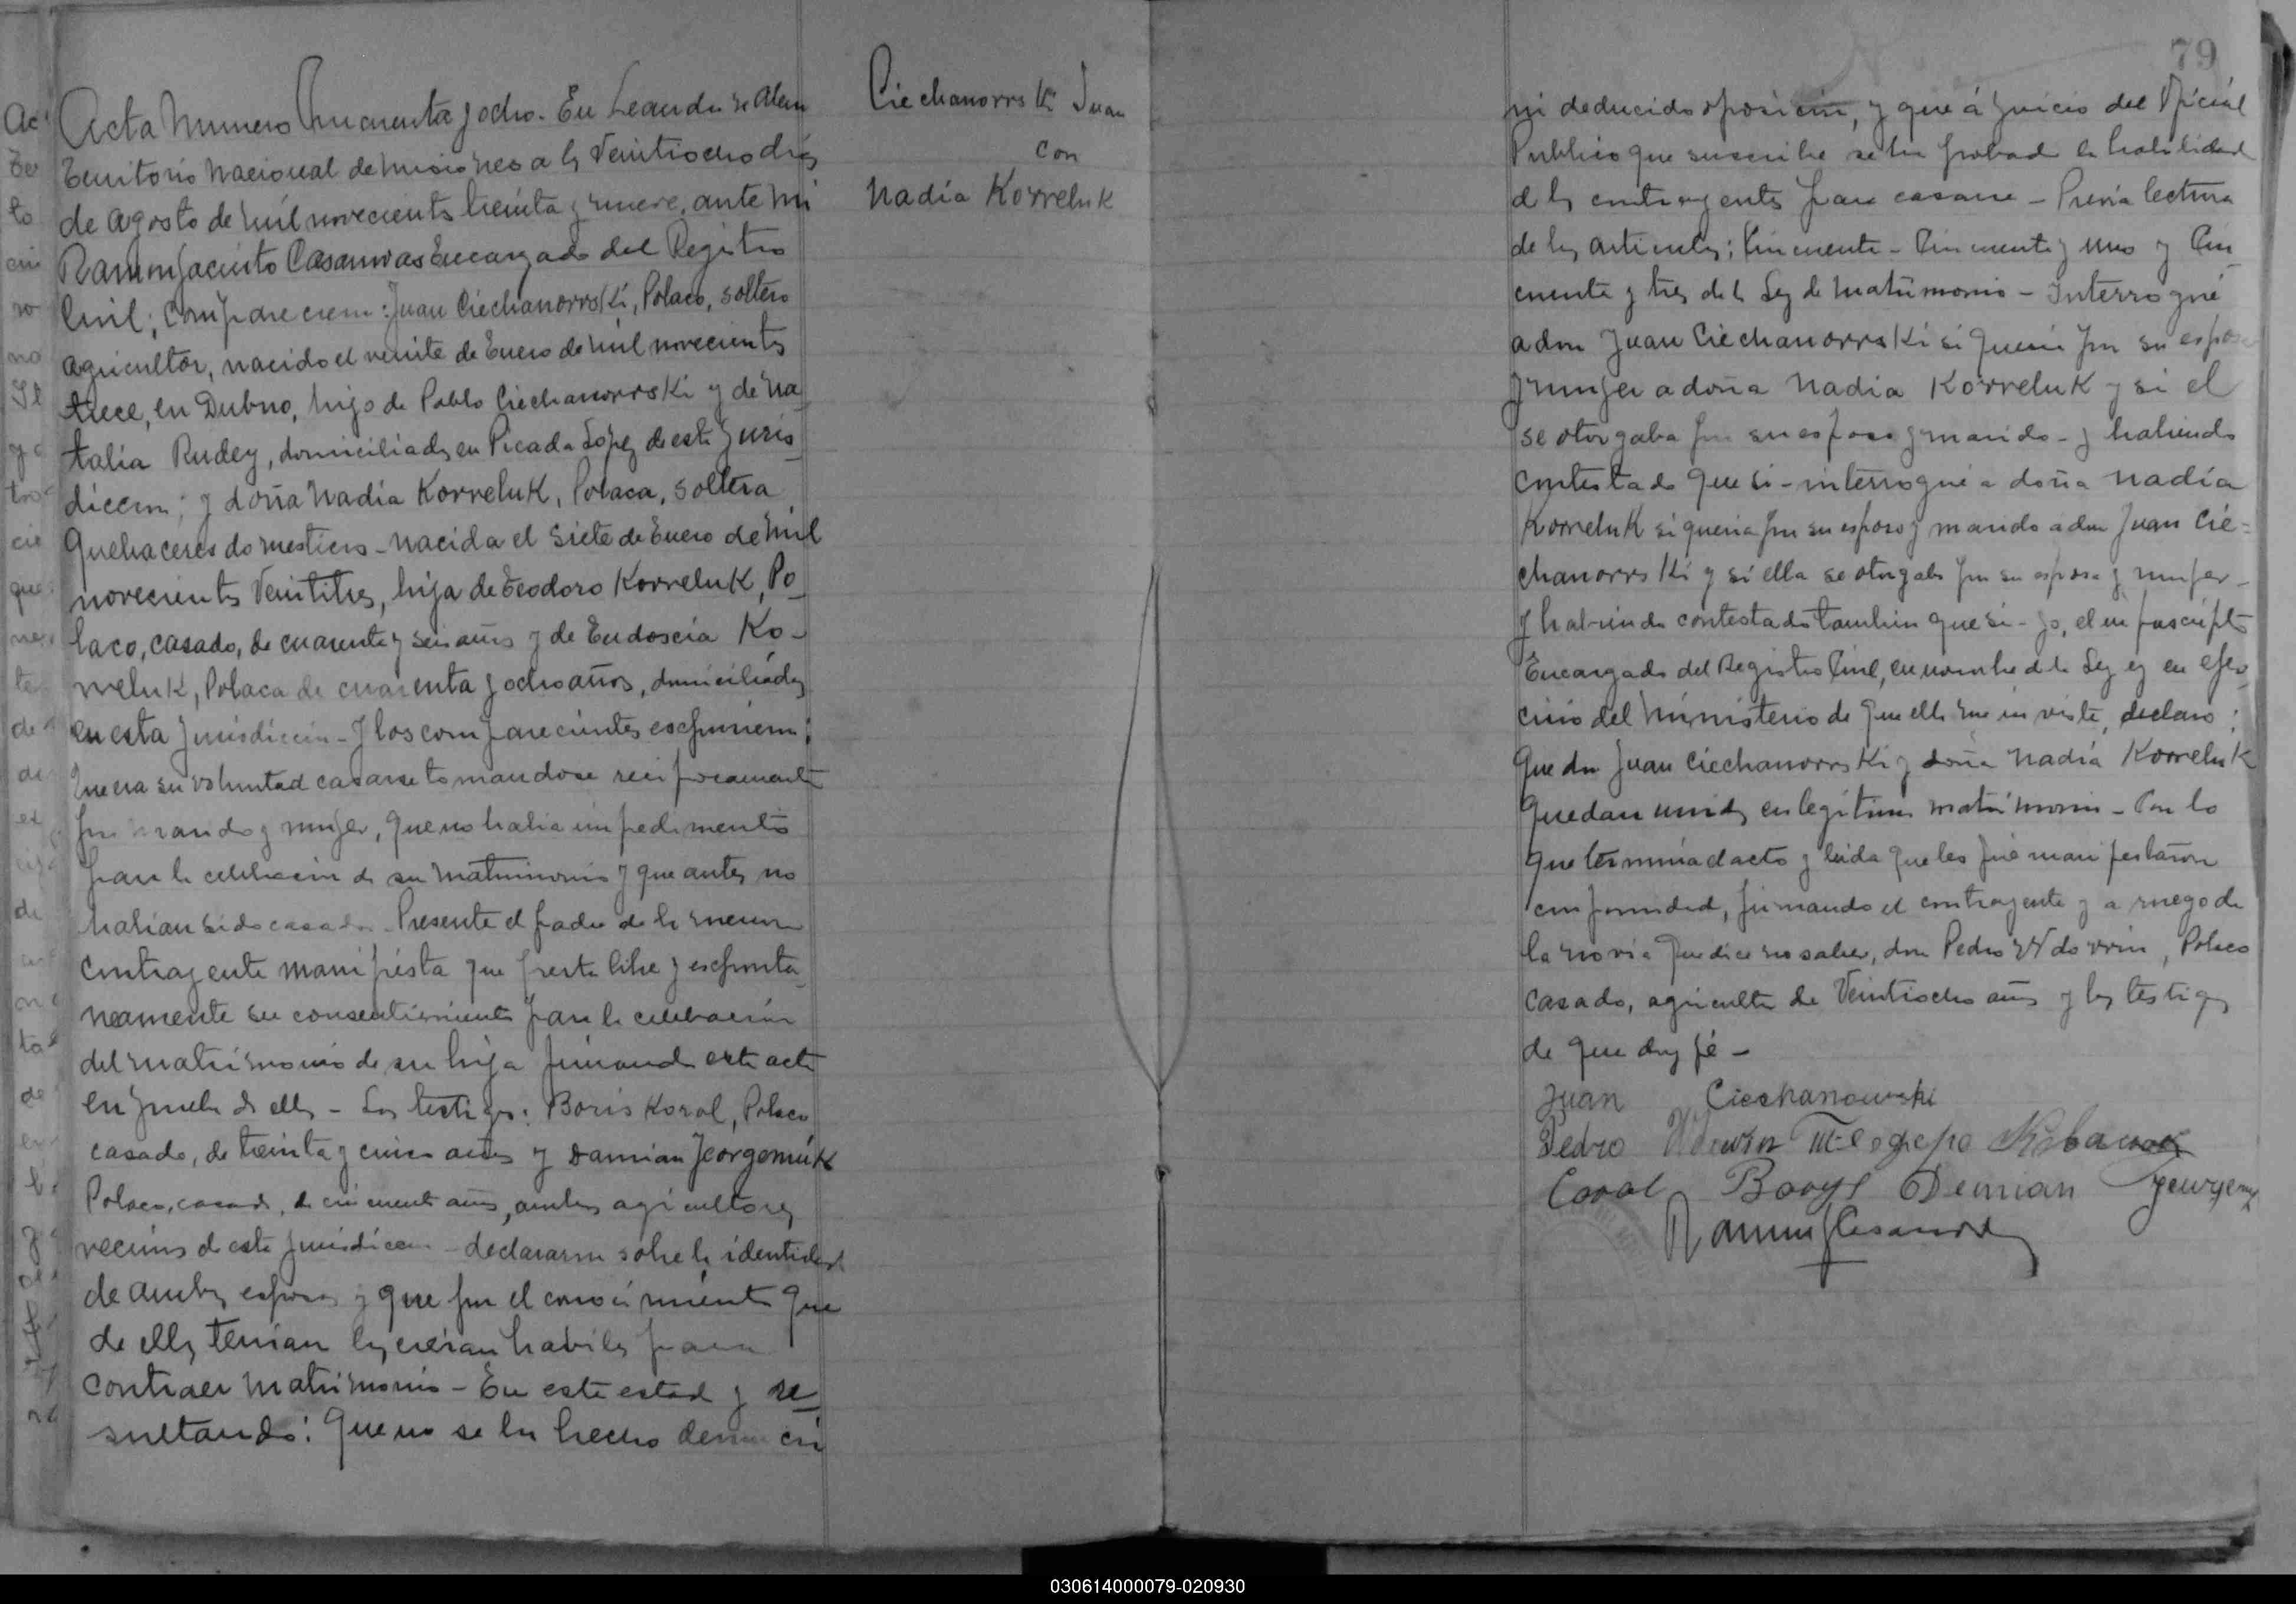 Acta Numero Cincuenta y ocho. En Leandro N Alem
Territorio Nacional de Misiones a los Veintiocho dias
de Agosto de mil novecientos treinta y nueve, ante mi
Ramon Jacinto Casanovas Encargado del Registro
Civil; Comparecieron: Juan Ciechanorrski, Polaco, soltero
agricultor, nacido el veinte de Enero de mil novecientos
trece, en Dubno, hijo de Pablo Ciechanorrski y de Na
talia Rudey, domiciliados en Picada Lopez de esta juris
diccion; y doña Nadia Korreluk, Polaca, soltera
Quehaceres domesticos - nacida el siete de Enero de mil
novecientos Veintitres, hija de Teodoro Korreluk, Po
laco, casado, de cuarenta y seis años y de Eudoscia Ko-
rreluk, Polaca de cuarenta y ocho años, domiciliados
en esta jurisdiccion - y los comparecientes espusieron:
Que era su voluntad casarse tomandose reciprocamente
por marido y mujer, que no habia impedimento
para la celebracion de su matrimonio y que antes no
habian sido casados. Presente el padre de la menor
contrayente manifiesta que presta libre y esponta
neamente su consentimiento para la celebracion
del matrimonio de su hija firmando este acta
en prueba de ello - Los testigos: Boris Koral, Polaco
casado, de treinta y cinco años y Damian Jeorgemiuk
Polaco, casado, de cincuenta años, ambos agricultores
vecinos de esta jurisdiccion - declararon sobre la identidad
de ambos esposos y que por el conocimiento que
de ellos tenian los creian habiles para
contraer matrimonio - En este estado y re
sultando: Que no se ha hecho denuncia
Ciechanorrski Juan
con
Nadia Korreluk
79
ni deducido oposicion, y que á juicio del Oficial
Publico que suscribe se ha probado la habilidad
de los contrayentes para casarse - Previa lectura
de los articulos; Cincuenta - Cincuenta y uno y Cin
cuenta y tres de la Ley de Matrimonio - Interrogué
a don Juan Ciechanorrski si queria por su esposa
y mujer a doña Nadia Korreluk y si el
se otorgaba por su esposo y marido - y habiendo
contestado que si - interrogué a doña Nadia
Korreluk si queria por su esposo y marido a don Juan Cie=
chanorrski y si ella se otorgaba por su esposa y mujer -
y habiendo contestado tambien que si - yo, el infrascripto
Encargado del Registro Civil, en nombre de la Ley y en ejer
cicio del ministerio de que ella me inviste, declaro:
Que don Juan Ciechanorrski y doña Nadia Korreluk
quedan unidos en legitimo matrimonio - Con lo
que termina el acto y leida que les fué manifestaron
conformidad, firmando el contrayente y a ruego de
la novia que dice no saber, don Pedro Wdorrin, Polaco
casado, agricultor de Veintiocho años y los testigos
de que doy fé -
Juan Ciechanowski
Pedro Wdowin
Coral Borys Demian